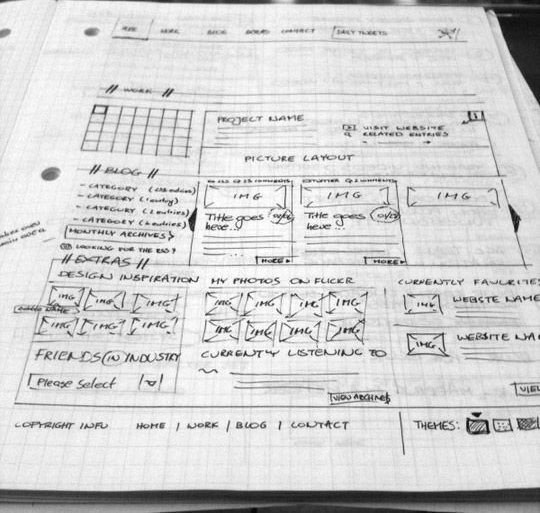 WORK BLOG ABOUT CONTACT DAILY TWEETS
// WORK //
PROJECT NAME
VISIT WEBSITE
RELATED ENTRIES
PICTURE LAYOUT
// BLOG //
- CATEGORY
- CATEGORY
- CATEGORY
- CATEGORY
MONTHLY ARCHIVES
LOOKING FOR THE RSS?
IMG IMG IMG
Title goes here...
Title goes here...
MORE
MORE
// EXTRAS //
DESIGN INSPIRATION
IMG IMG IMG
IMG IMG IMG
MY PHOTOS ON FLICKR
IMG IMG IMG IMG
IMG IMG IMG IMG
CURRENTLY FAVOURITES
IMG WEBSITE NAME
IMG WEBSITE NA
FRIENDS IN INDUSTRY
Please Select
CURRENTLY LISTENING TO
VIEW ARCHIVES
VIE
COPYRIGHT INFO HOME | WORK | BLOG | CONTACT THEMES: